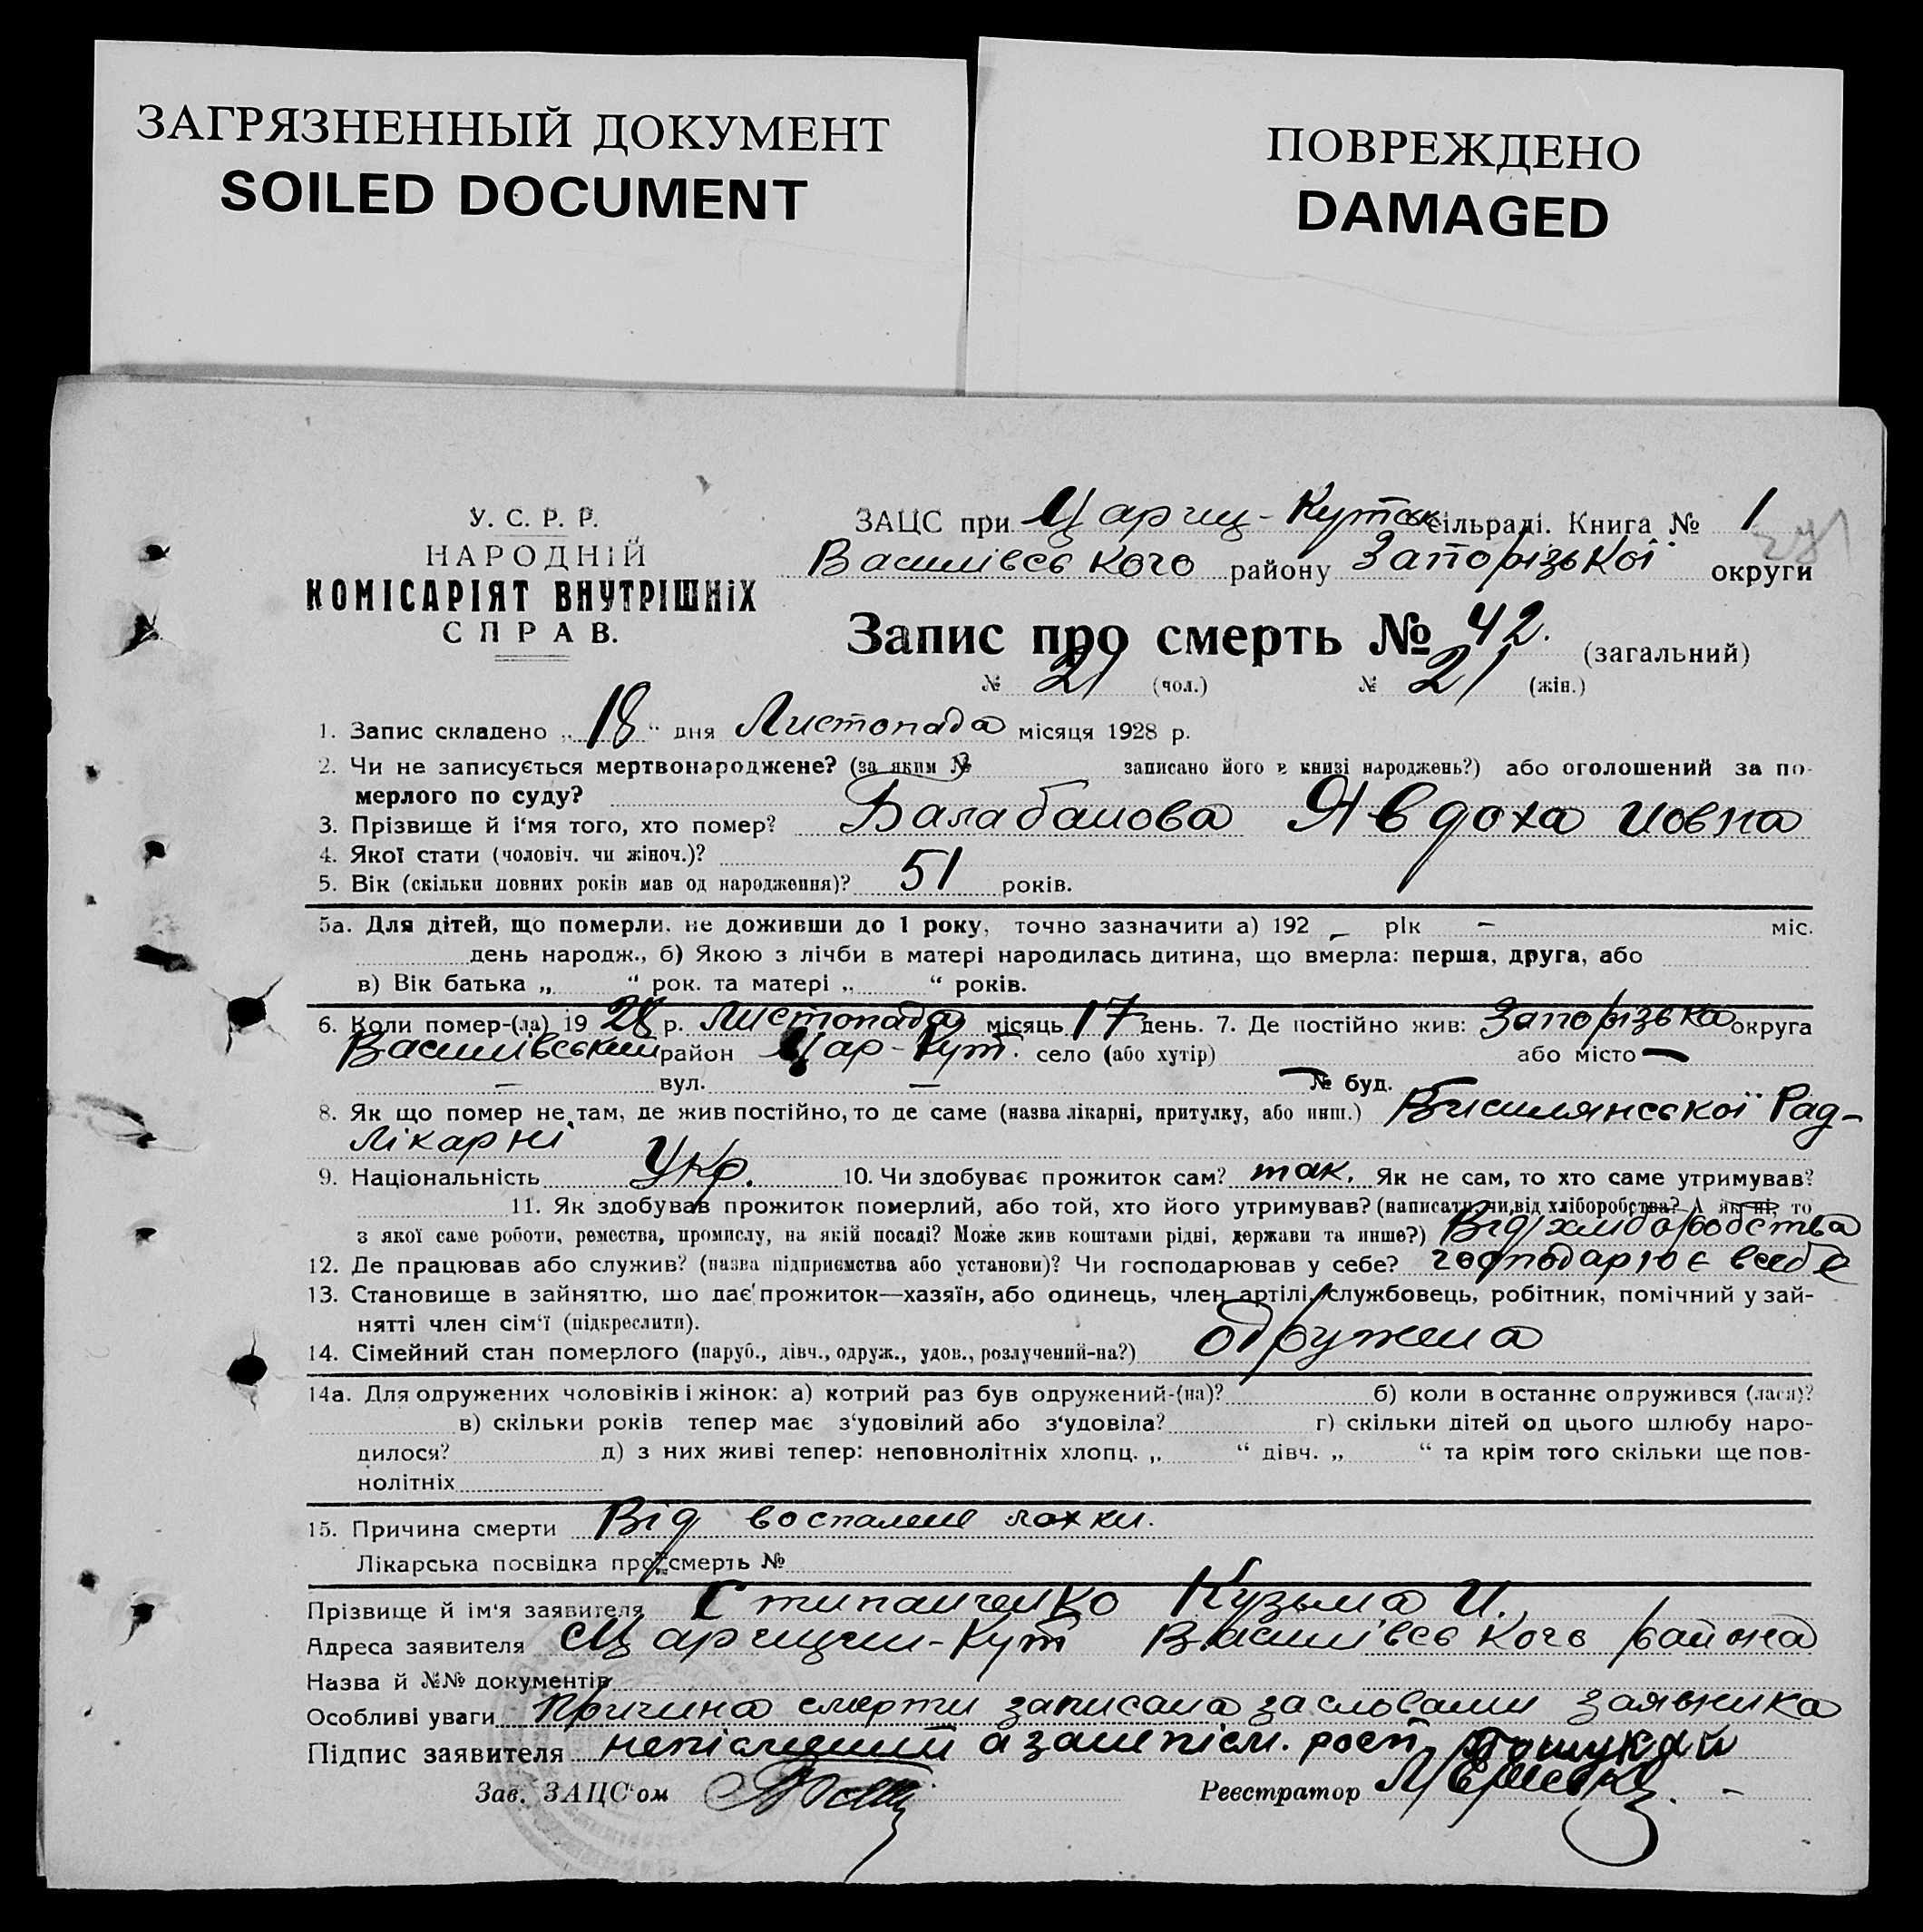 ЗАГРЯЗНЕННЫЙ ДОКУМЕНТ
SOILED DOCUMENT
ПОВРЕЖДЕНО
DAMAGED
У. С. Р. Р.
НАРОДНІЙ
КОМІСАРІЯТ ВНУТРІШНІХ
СПРАВ.
ЗАЦС при Цариц-Кутск сільраді. Книга № 1
Василівського району Запорізької округи
Запис про смерть № 42. (загальний)
№ 21 (чол.) № 21 (жін.)
1. Запис складено „18“ дня Листопада місяця 1928 р.
2. Чи не записується мертвонароджене? (за яким № записано його в книзі народжень?) або оголошений за по-
мерлого по суду?
3. Прізвище й і'мя того, хто помер? Балабанова Явдоха Иовна
4. Якої стати (чоловіч. чи жіноч.)?
5. Вік (скільки повних років мав од народження)? 51 років.
5а. Для дітей, що померли, не доживши до 1 року, точно зазначити а) 192 – рік – міс.
день народж., б) Якою з лічби в матері народилась дитина, що вмерла: перша, друга, або
в) Вік батька „ “ рок. та матері „ “ років.
6. Коли помер-(ла) 1928 р. Листопада місяць 17 день. 7. Де постійно жив: Запорізька округа
Василівський район Цар-Кут. село (або хутір) або місто —
— вул. — № буд.
8. Як що помер не там, де жив постійно, то де саме (назва лікарні, притулку, або инш.) Василянської Рад-
лікарні
9. Національність Укр. 10. Чи здобуває прожиток сам? так. Як не сам, то хто саме утримував?
11. Як здобував прожиток померлий, або той, хто його утримував? (написати, чи від хліборобства? А як ні, то
з якої саме роботи, ремества, промислу, на якій посаді? Може жив коштами рідні, держави та инше?) Від хліборобства
12. Де працював або служив? (назва підприємства або установи)? Чи господарював у себе? господарює в себе
13. Становище в зайняттю, що дає прожиток—хазяїн, або одинець, член артілі, службовець, робітник, помічний у зай-
нятті член сім'ї (підкреслити).
14. Сімейний стан померлого (паруб., дівч., одруж., удов., розлучений-на?) одружена
14а. Для одружених чоловіків і жінок: а) котрий раз був одружений-(на)? б) коли в останнє одружився (лася)?
в) скільки років тепер має з'удовілий або з'удовіла? г) скільки дітей од цього шлюбу наро-
дилося? д) з них живі тепер: неповнолітніх хлопц. „ “ дівч. „ “ та крім того скільки ще пов-
нолітніх
15. Причина смерти Від воспалене лохки.
Лікарська посвідка про смерть №
Прізвище й ім'я заявителя Стипанченко Кузьма И.
Адреса заявителя с Царицин-Кут Василівського района
Назва й №№ документів
Особливі уваги Причина смерти записана за словами заявника
Підпис заявителя непісменний а за непісм. росп Пошукай
Зав. ЗАЦС'ом
Реєстратор